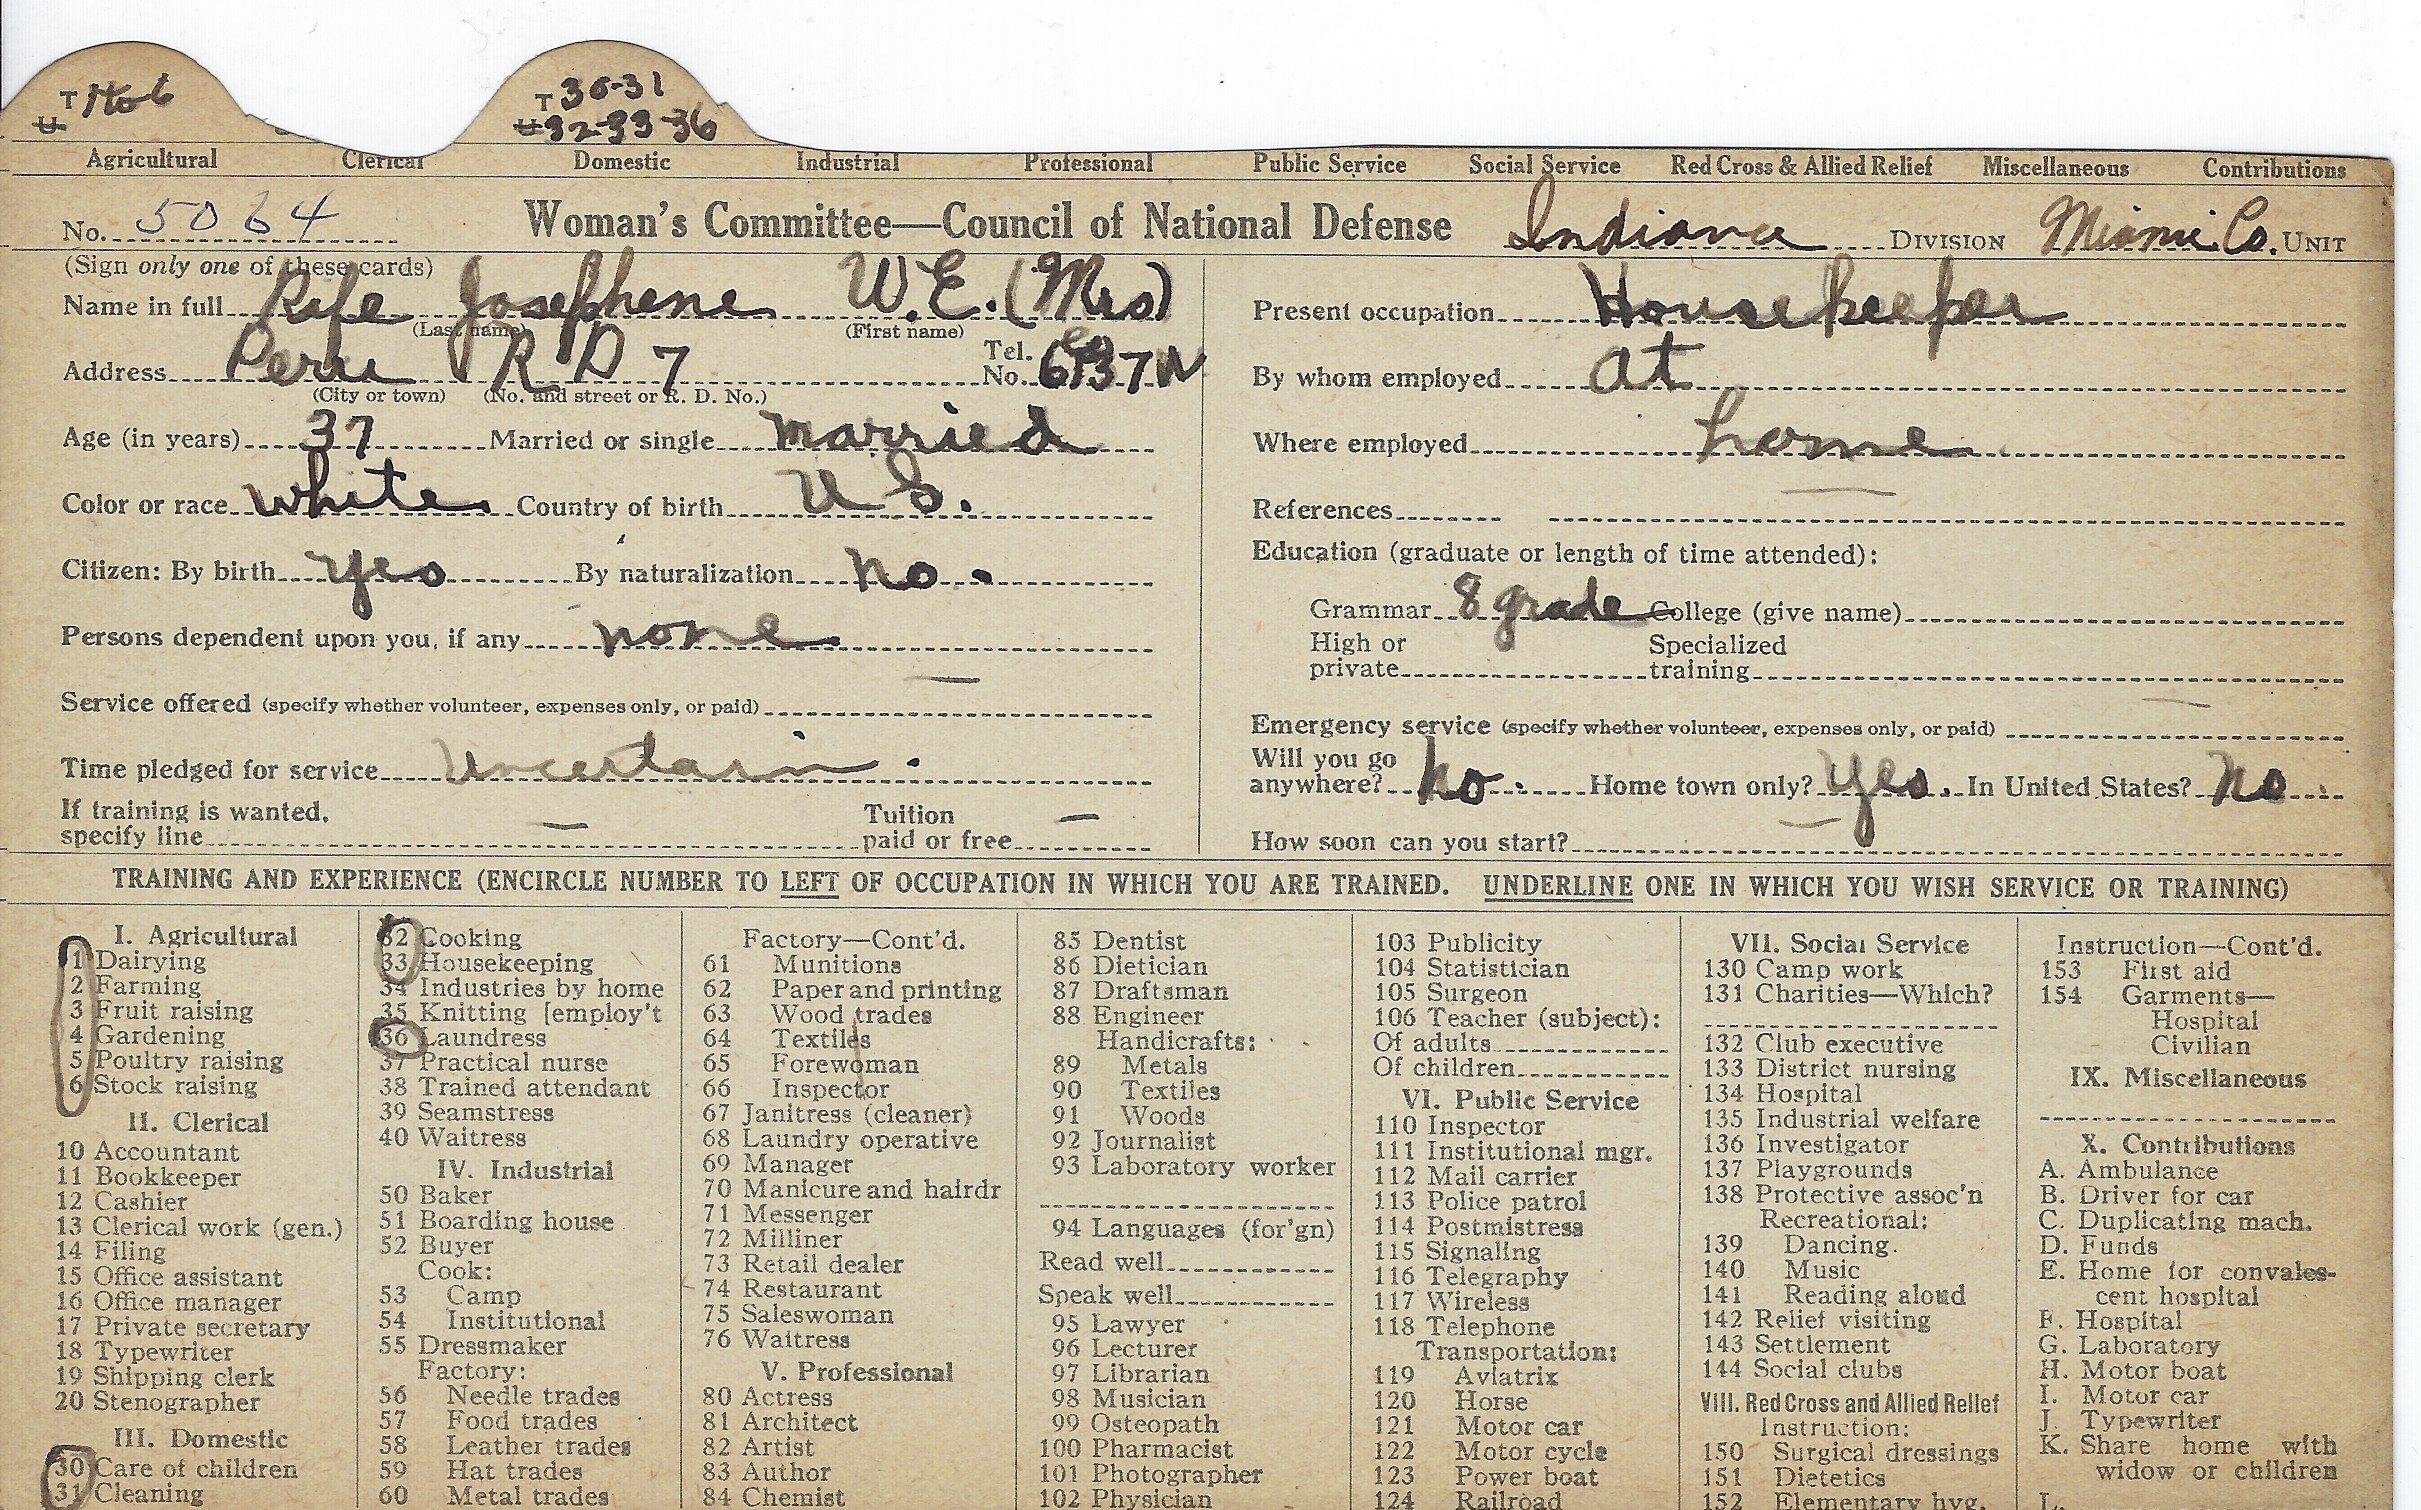 T 1 to 6
U
T 30-31
U 32-33-36
Agricultural Clerical Domestic Industrial Professional Public Service Social Service Red Cross & Allied Relief Miscellaneous Contributions
No. 5064 Woman's Committee—Council of National Defense Indiana DIVISION Miami Co. UNIT
(Sign only one of these cards)
Name in full Rife Josephene W.E. (Mrs)
(Last name) (First name)
Address Peru R D 7 Tel. No.
(City or town) (No. and street or R. D. No.)
Age (in years) 37 Married or single married
Color or race white Country of birth U S.
Citizen: By birth yes By naturalization no.
Persons dependent upon you, if any none
Service offered (specify whether volunteer, expenses only, or paid) —
Time pledged for service Uncertain.
If training is wanted, specify line — Tuition paid or free —
Present occupation Housekeeper
By whom employed at
Where employed home
References —
Education (graduate or length of time attended):
Grammar 8 grade College (give name)
High or private Specialized training
Emergency service (specify whether volunteer, expenses only, or paid) —
Will you go anywhere? no. Home town only? yes. In United States? no
How soon can you start? —
TRAINING AND EXPERIENCE (ENCIRCLE NUMBER TO LEFT OF OCCUPATION IN WHICH YOU ARE TRAINED. UNDERLINE ONE IN WHICH YOU WISH SERVICE OR TRAINING)
I. Agricultural
1 Dairying
2 Farming
3 Fruit raising
4 Gardening
5 Poultry raising
6 Stock raising
II. Clerical
10 Accountant
11 Bookkeeper
12 Cashier
13 Clerical work (gen.)
14 Filing
15 Office assistant
16 Office manager
17 Private secretary
18 Typewriter
19 Shipping clerk
20 Stenographer
III. Domestic
30 Care of children
31 Cleaning
32 Cooking
33 Housekeeping
34 Industries by home
35 Knitting [employ't
36 Laundress
37 Practical nurse
38 Trained attendant
39 Seamstress
40 Waitress
IV. Industrial
50 Baker
51 Boarding house
52 Buyer
Cook:
53 Camp
54 Institutional
55 Dressmaker
Factory:
56 Needle trades
57 Food trades
58 Leather trades
59 Hat trades
60 Metal trades
Factory—Cont'd.
61 Munitions
62 Paper and printing
63 Wood trades
64 Textiles
65 Forewoman
66 Inspector
67 Janitress (cleaner)
68 Laundry operative
69 Manager
70 Manicure and hairdr
71 Messenger
72 Milliner
73 Retail dealer
74 Restaurant
75 Saleswoman
76 Waitress
V. Professional
80 Actress
81 Architect
82 Artist
83 Author
84 Chemist
85 Dentist
86 Dietician
87 Draftsman
88 Engineer
Handicrafts:
89 Metals
90 Textiles
91 Woods
92 Journalist
93 Laboratory worker
94 Languages (for'gn)
Read well
Speak well
95 Lawyer
96 Lecturer
97 Librarian
98 Musician
99 Osteopath
100 Pharmacist
101 Photographer
102 Physician
103 Publicity
104 Statistician
105 Surgeon
106 Teacher (subject):
Of adults
Of children
VI. Public Service
110 Inspector
111 Institutional mgr.
112 Mail carrier
113 Police patrol
114 Postmistress
115 Signaling
116 Telegraphy
117 Wireless
118 Telephone
Transportation:
119 Aviatrix
120 Horse
121 Motor car
122 Motor cycle
123 Power boat
124 Railroad
VII. Social Service
130 Camp work
131 Charities—Which?
132 Club executive
133 District nursing
134 Hospital
135 Industrial welfare
136 Investigator
137 Playgrounds
138 Protective assoc'n
Recreational:
139 Dancing.
140 Music
141 Reading aloud
142 Relief visiting
143 Settlement
144 Social clubs
VIII. Red Cross and Allied Relief
Instruction:
150 Surgical dressings
151 Dietetics
152 Elementary hyg.
Instruction—Cont'd.
153 First aid
154 Garments—
Hospital
Civilian
IX. Miscellaneous
X. Contributions
A. Ambulance
B. Driver for car
C. Duplicating mach.
D. Funds
E. Home for convales-
cent hospital
F. Hospital
G. Laboratory
H. Motor boat
I. Motor car
J. Typewriter
K. Share home with
widow or children
L.